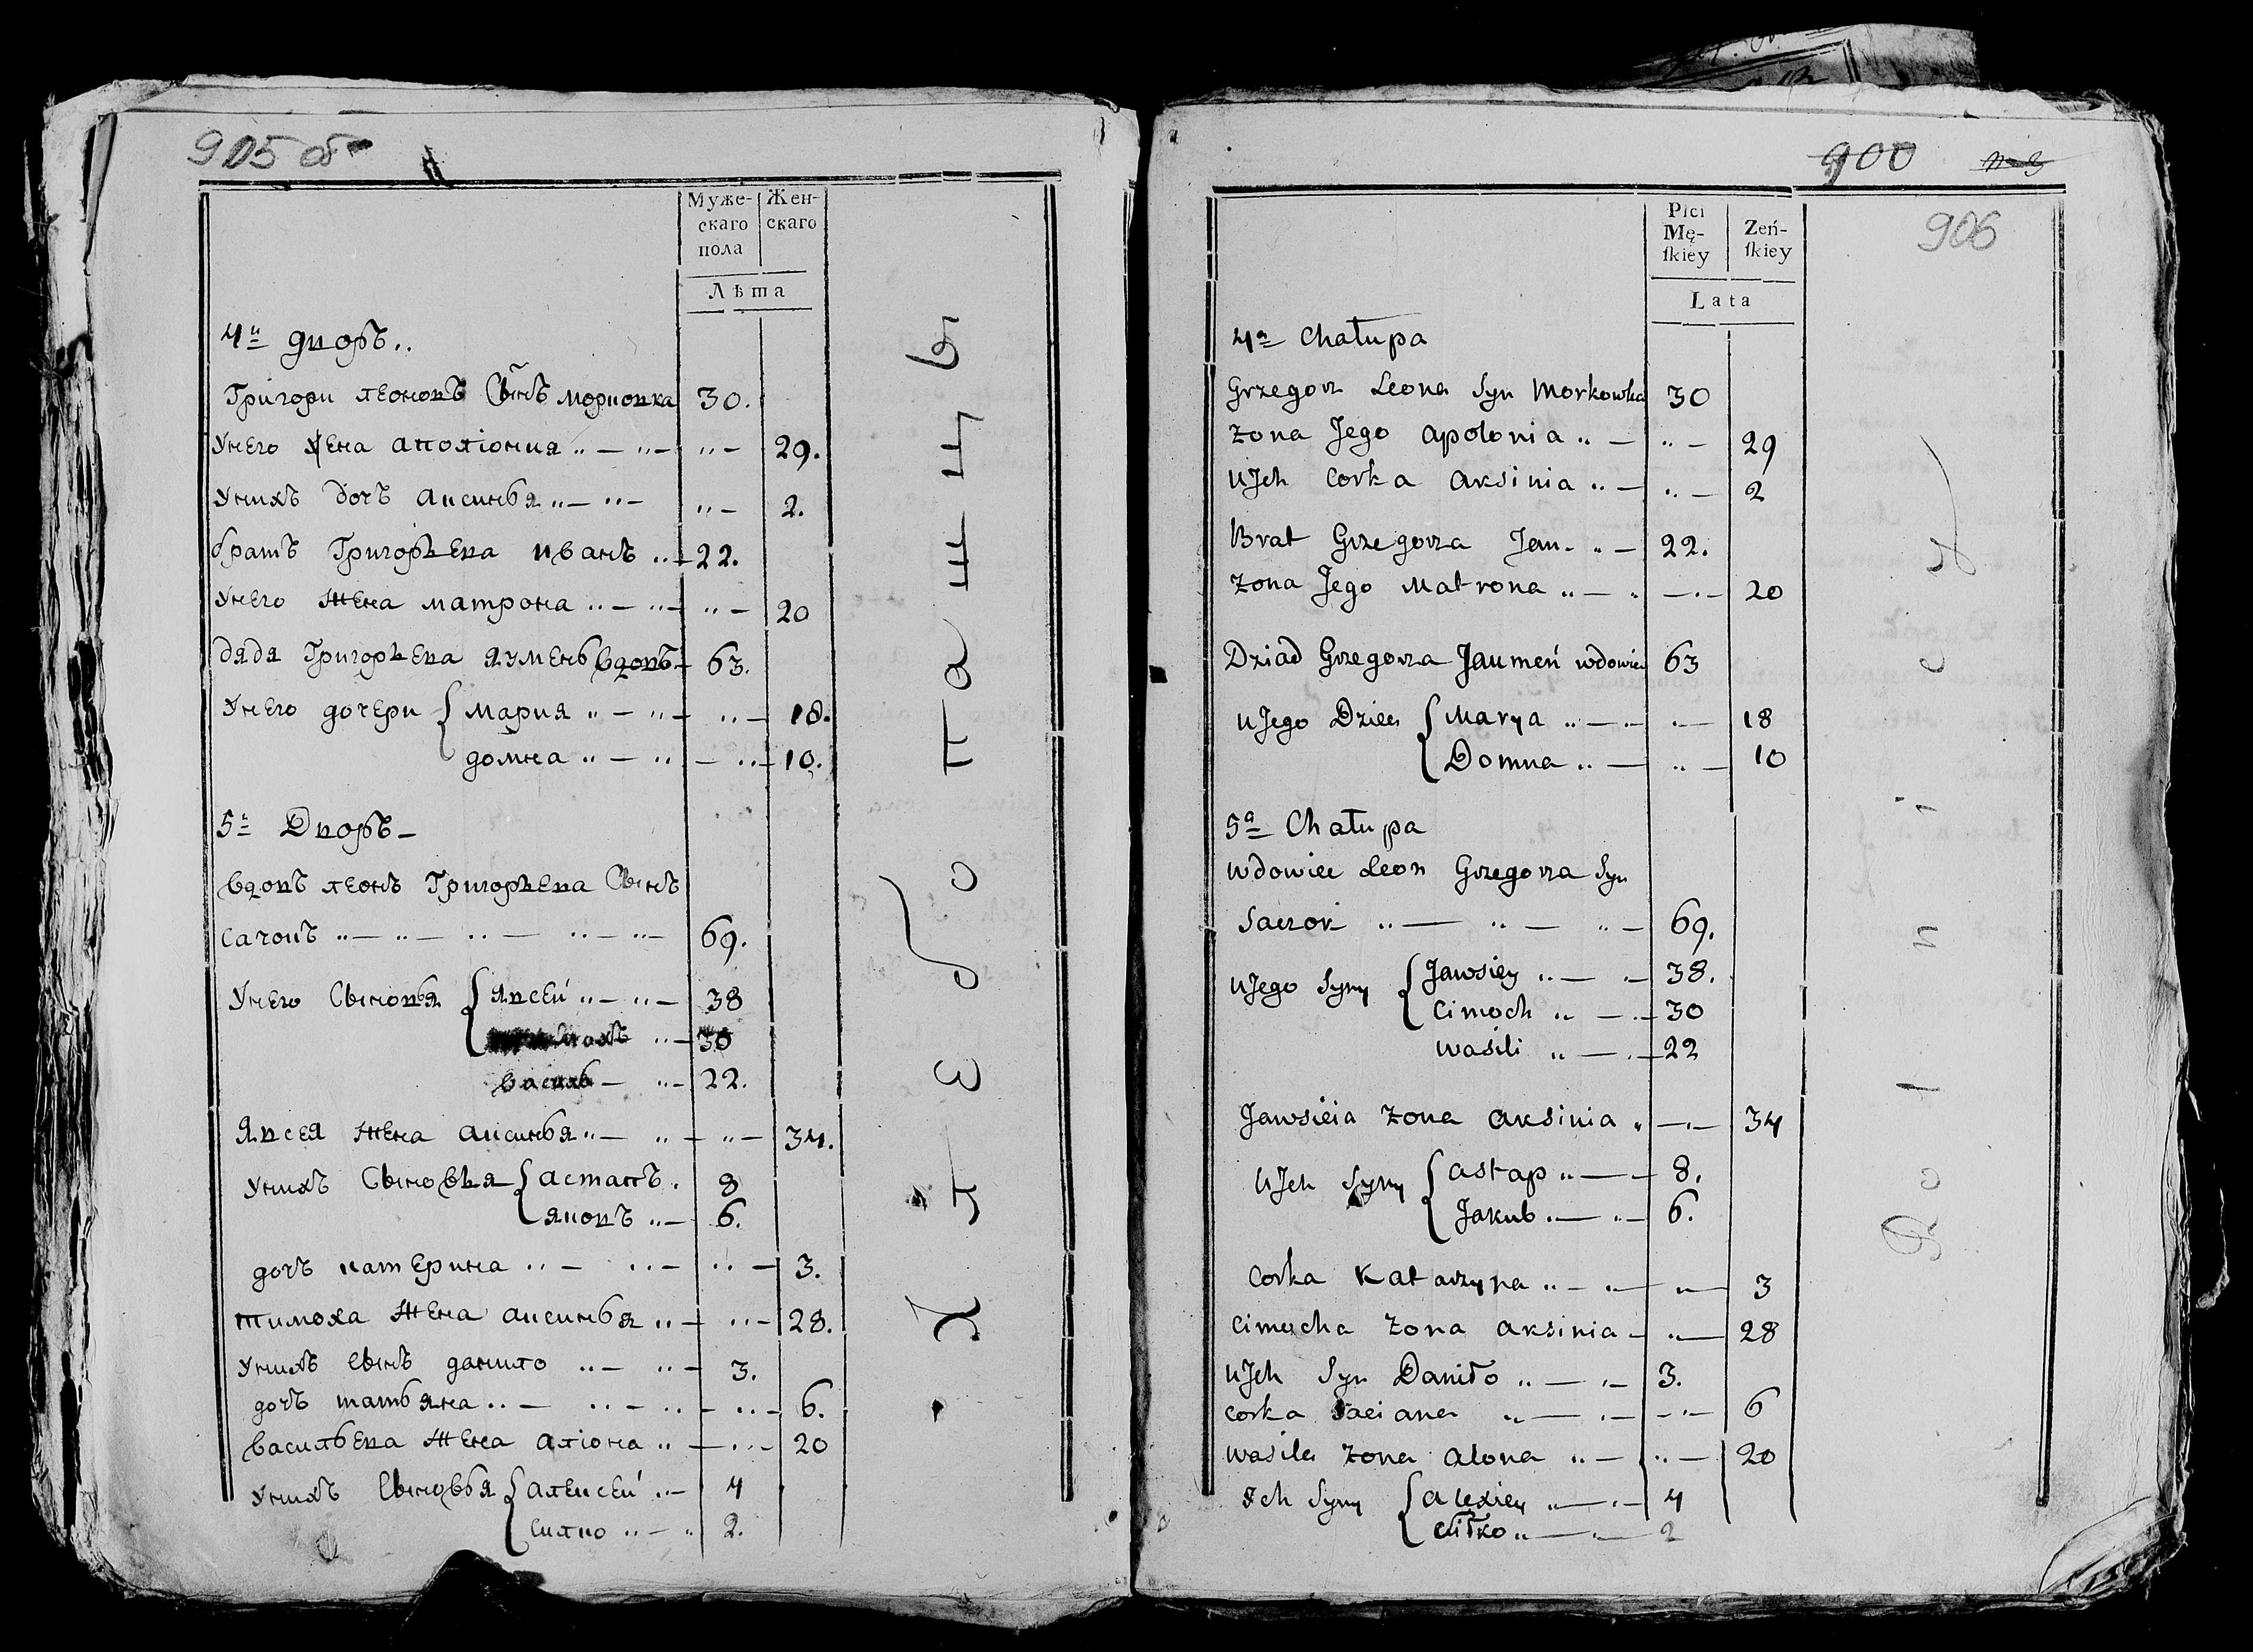 905 об
Муже-
скаго
пола
Жен-
скаго
Лѣта
4й дворъ..
Григори леоновъ Сынъ морковка 30.
Унего жена аполіония ..— ..— ..— 29.
Унихъ дочъ аксинья ..— ..— ..— 2.
братъ Григорьева иванъ ..— 22.
Унего жена матрона ..— ..— ..— 20
дядя Григорьева яумень вдовъ— 63.
Унего дочери { мария ..— ..— ..— 18.
домна ..— .. — ..— 10.
5й Дворъ—
вдовъ леонъ Григорьева Сынъ
сачокъ ..— ..— ..— ..— ..— 69.
Унего Сыновья { явсей ..— ..— 38
мохъ ..— 30
василь — ..— 22.
Явсея жена аксинья ..— ..— ..— 34.
Унихъ Сыновья { астапъ. 8
яковъ ..— 6.
дочъ катерина ..— ..— ..— 3.
тимоха жена аксинья ..— ..— 28.
Унихъ сынъ данило ..— ..— 3.
дочъ татьяна ..— ..— ..— ..— 6.
васильева жена аліона ..— ..— 20
Унихъ Сыновья { алексей ..— 4
силко ..— .. 2.
Хлебопашец
900
906
Płci
Mę-
ſkiey
Zeń-
ſkiey
Lata
4a Chałupa
Grzegorz Leona Syn Morkowka 30
żona Jego apolonia ..— ..— 29
uJch Corka aksinia ..— ..— 2
Brat Grzegorza Jan. ..— 22.
żona Jego Matrona ..— .. —..— 20
Dziad Grzegorza Jaumeń wdowiec 63
uJego Dzieci { Marya ..— ..— ..— 18
Domna ..— ..— 10
5a Chałupa
wdowiec Leon Grzegorza Syn
Saczok ..— ..— ..— 69.
uJego Syny { Jawsiey ..— ..— 38.
Cimoch .. —..— 30
wasili ..— ..— 22
Jawsieia żona aksinia .. —..— 34
uJch Syny { astap ..—— 8.
Jakub ..— ..— 6.
Corka Katarzyna ..— ..— ..— 3
Cimocha żona aksinia — ..— 28
uJch Syn Daniło ..— ..— 3.
Corka Taciana ..— ..— —..— 6
wasila żona alona ..— ..— 20
Jch Syny { alexiey ..— ..— 4
Siłko ..— ..— 2
Rolnicy